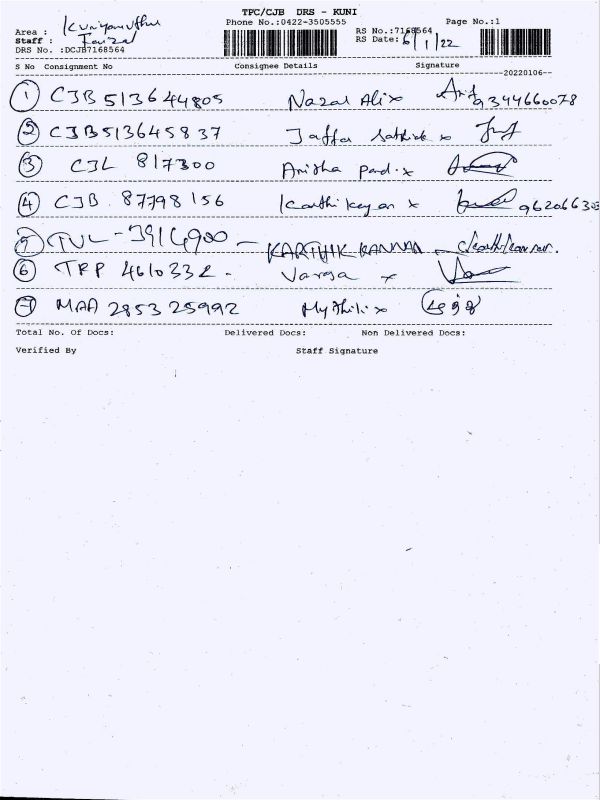 TPC/CJB DRS - KUNI
Area : Kuniyamuthur Phone No.:0422-3505555 RS No.:7168564 Page No.:1
Staff : Faizal RS Date: 6/1/22
DRS No. :DCJB7168564
S No Consignment No Consignee Details Signature
20220106--
1 CJB 513644805 Nazar Ali x 9344660078
2 CJB 513645837 Jaffar Sathick x
3 CJL 817300 Anisha x
4 CJB 87798156 Karthikeyan x 962066303
5 TVL - 3914900 - KARTHIK KANNAN
6 TRP 4610332 - Varsa x
7 MAA 285325992 Mythili x
Total No. Of Docs: Delivered Docs: Non Delivered Docs:
Verified By Staff Signature